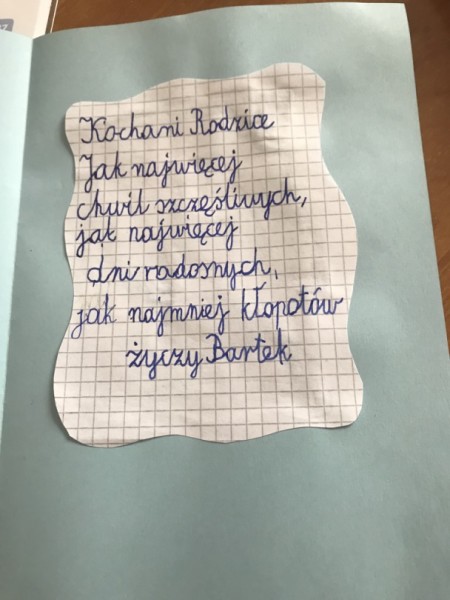 Kochani Rodzice
Jak najwięcej
chwil szczęśliwych,
jak najwięcej
dni radosnych,
jak najmniej kłopotów
życzy Bartek